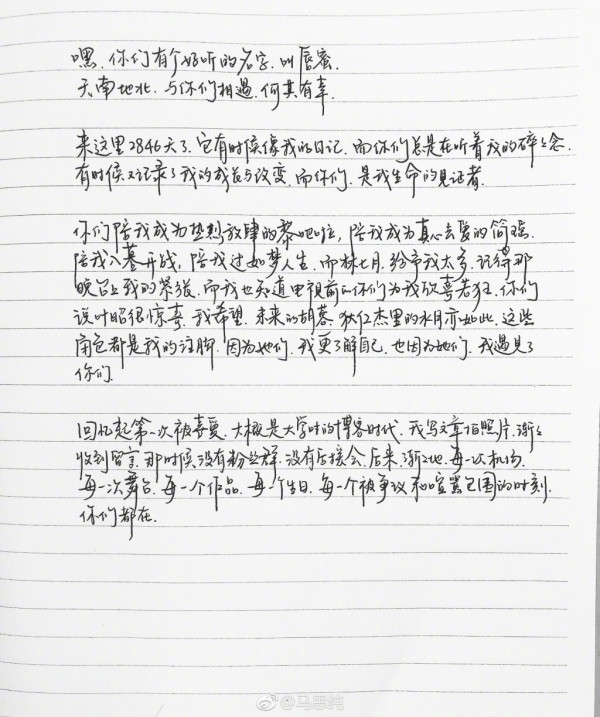 嘿、你们有个好听的名字、叫唇蜜.
天南地北、与你们相遇、何其有幸
来这里2846天了、它有时候像我的日记、而你们总是在听着我的碎々念.
有时候又记录了我的成长与改变、而你们、是我生命的见证者.
你们陪我成为热烈放肆的黎吧啦, 陪我成为真心去爱的简瑶.
陪我入墓开战, 陪我过如梦人生. 而林七月、给予我太多. 记得那
晚台上我的紧张、而我也知道电视前的你们为我欣喜若狂. 你们
说叶昭很惊喜、我希望、未来的胡蓉、狄仁杰里的水月亦如此、这些
角色都是我的注脚、因为她们、我更了解自己、也因为她们、我遇见了
你们.
回忆起第一次被喜爱、大概是大学时的博客时代、我写文章拍照片、渐々
收到留言、那时候没有粉丝群、没有后援会、后来、渐々地、每一次机场
每一次舞台、每一个作品、每个生日、每一个被争议和喧嚣包围的时刻
你们都在.
@马思纯